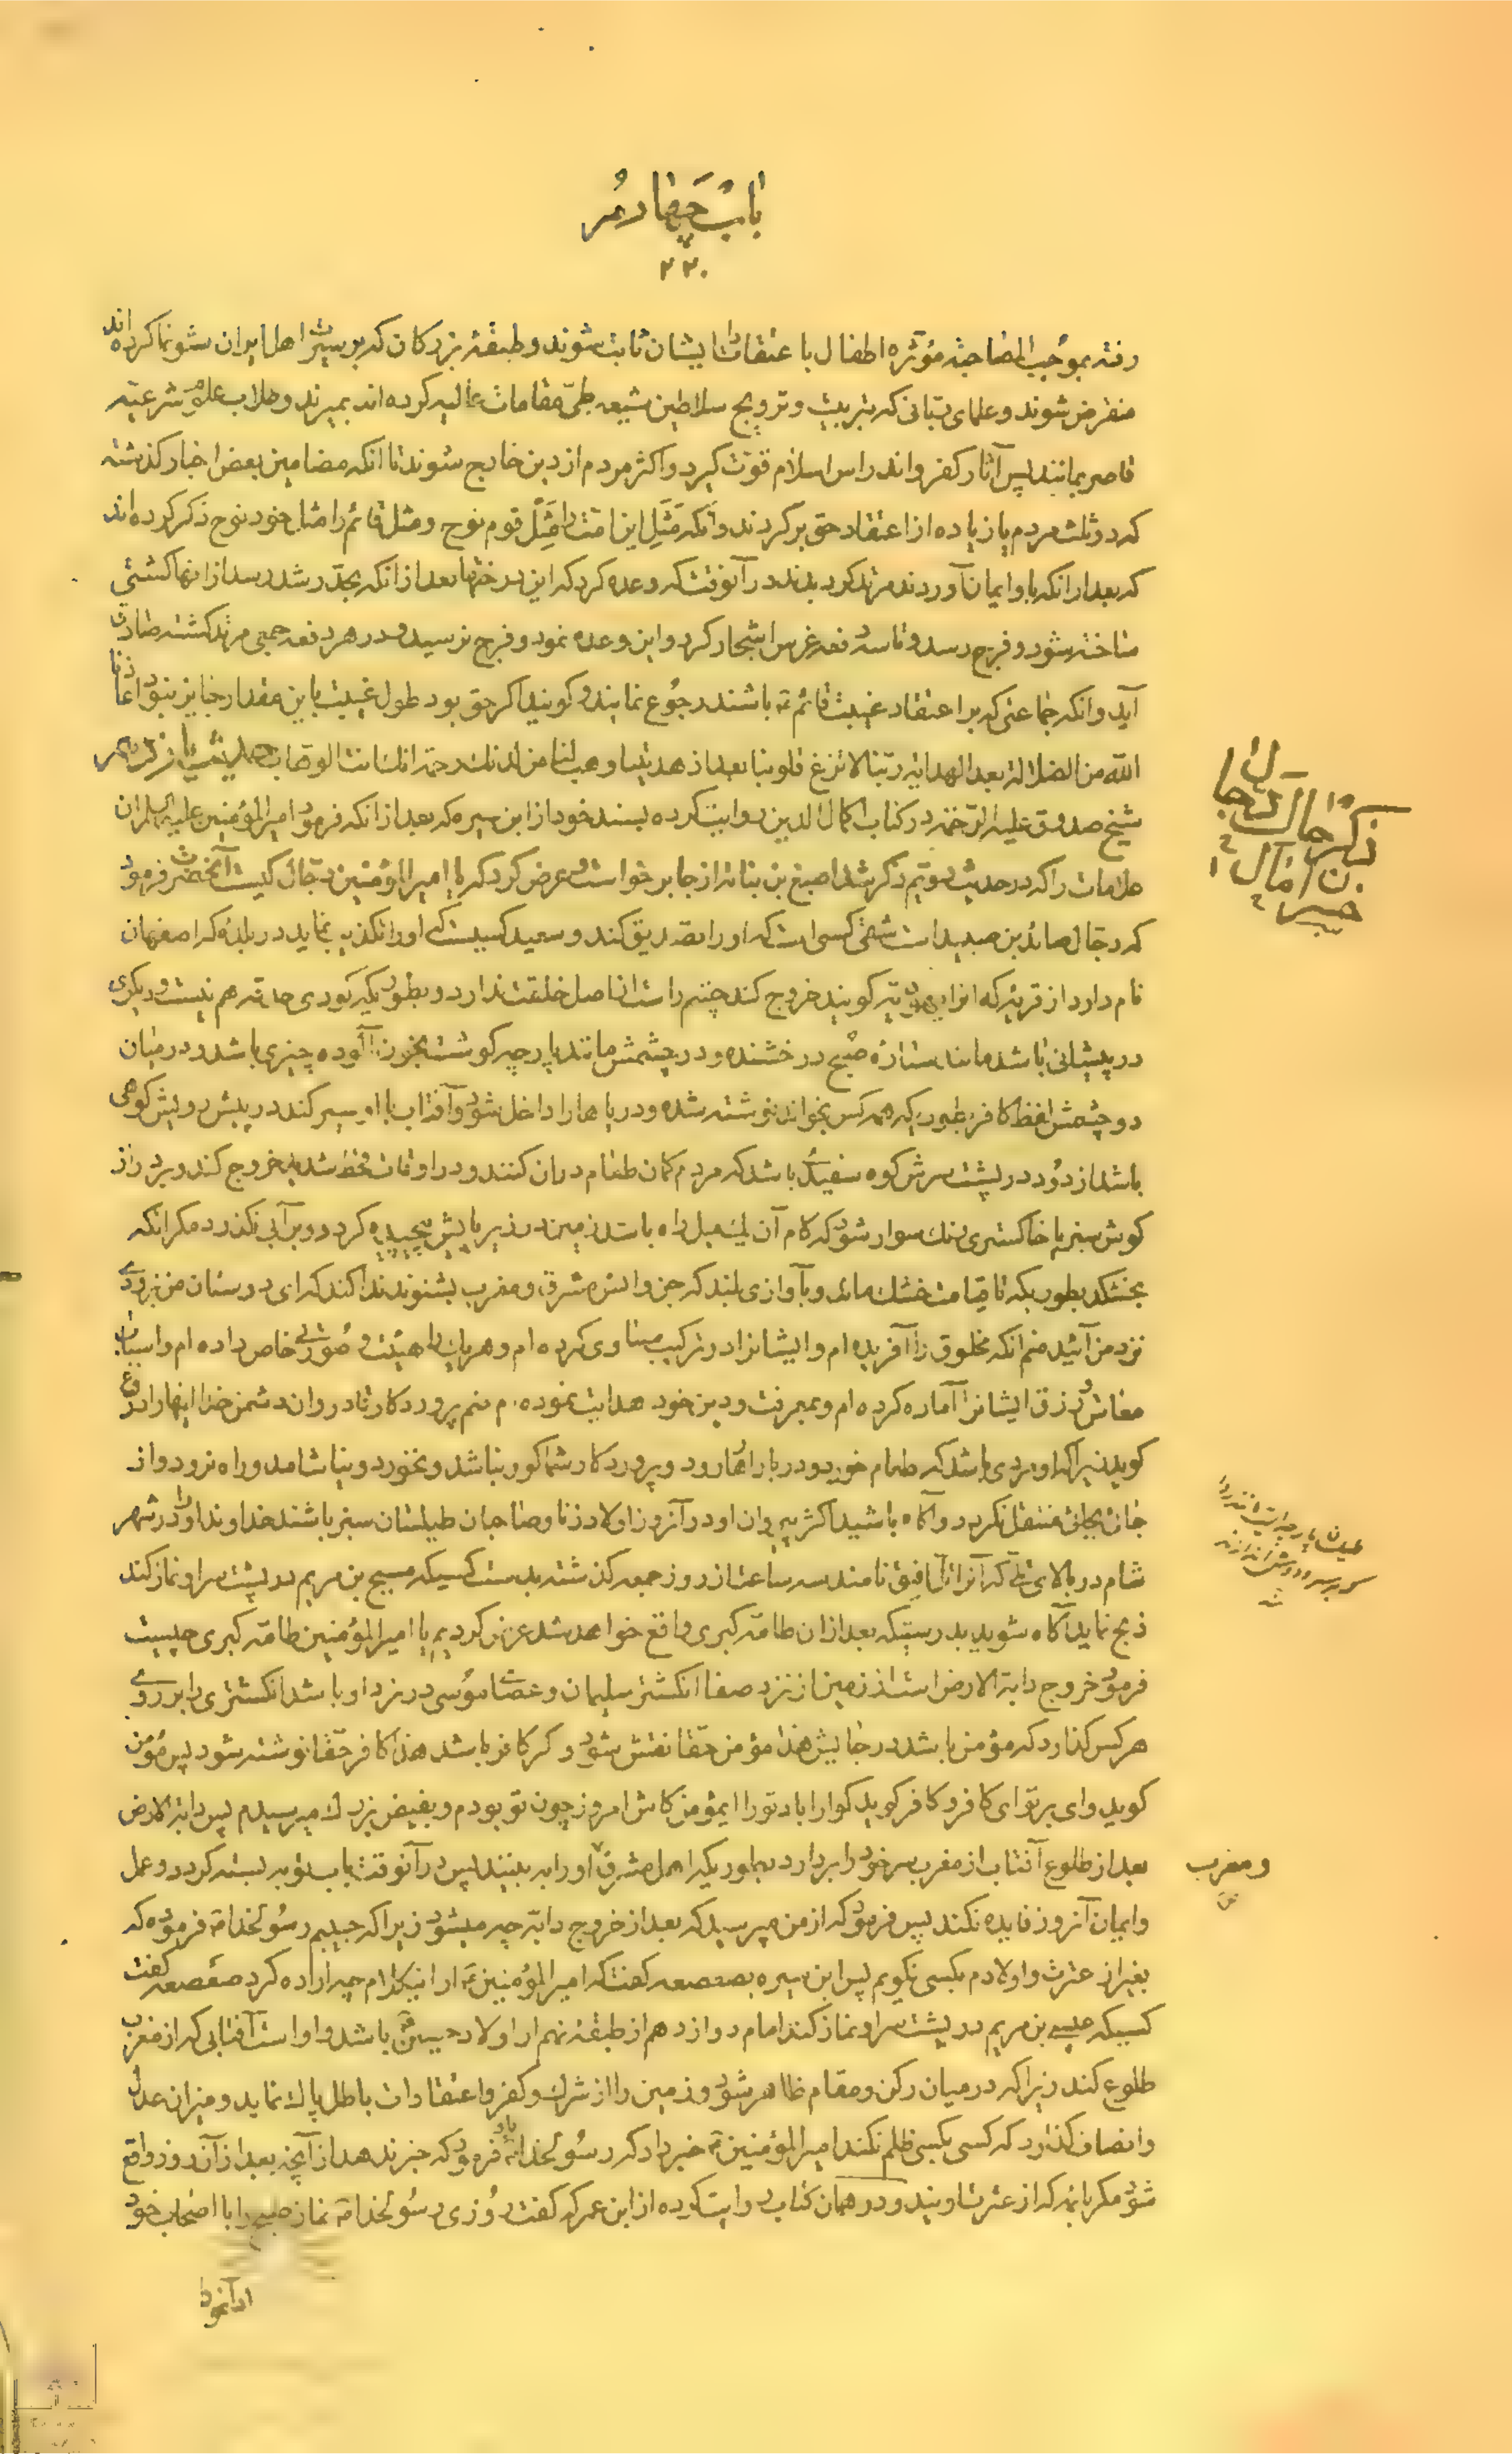 باب چهارم
۲۲۰
رفته بموجب المصاحبة مؤثرة اطفال با عتقادات ایشان ثابت شوند و طبقهٔ بزرکان که بر سیرت اهل ایران نشو نما کرده‌اند
منقرض شوند و علمای ربانی که بتربیت و ترویج سلاطین شیعه طیّ مقامات عالیه کرده اند بمیرند و طلاب علوم شرعیّه
قاصر بمانند پس آثار کفر و اندراس اسلام قوّت کیرد و اکثر مردم از دین خارج شوند تا انکه مضامین بعض اخبار کذشته
که دو ثلث مردم یا زیاده از اعتقاد حق بر کردند و آنکه مَثَل این امّت را مَثَل قوم نوح و مثل قائم را مثل خود نوح ذکر کرده اند
که بعد از انکه باو ایمان آوردند مرتد کردیدند در آنوقت که وعده کرد که این درختها بعد از انکه بحدّ رشد رسد از انها کشتی
ساخته شود و فرج رسد و تا سه دفعه غرس اشجار کرد و این وعده نمود و فرج نرسید و در هر دفعه جمعی مرتد کشتند صادق
آید و انکه جماعتی که بر اعتقاد غیبت قائم ع باشند رجوع نمایند و کویند اکر حق بود طول غیبت باین مقدار جایز نبود اعاذنا
الله من الضلالة بعد الهدایة ربّنا لا تزغ قلوبنا بعد اذ هدیتنا و هب لنا من لدنك رحمة انك انت الوهّاب حدیث
شیخ صدوق علیه الرّحمة در کتاب اکمال الدین روایت کرده بسند خود از ابن سبره که بعد از انکه فرمود امیر المؤمنین علیه السلام ان
علامات را که در حدیث دویّم ذکر شد اصبغ بن نباته از جا بر خواست و عرض کرد که یا امیر المؤمنین دجّال کیست آنحضرت فرمود
که دجّال صائد بن صید است شقی کسی است که او را تصدیق کند و سعید کسیست که او را تکذیب نماید در بلدهٔ که اصفهان
نام دارد از قریهٔ که انرا یهودیّه کویند خروج کند چشم راست از اصل خلقت ندارد و بطوریکه کودی حدقه هم نیست و دیکری
در پیشانی باشد مانند ستارهٔ صبح درخشنده و در چشمش مانند پارچه کوشت بخون آلوده چیزی باشد و در میان
دو چشمش لفظ کافر بطوریکه همه کس بخواند نوشته شده و دریاها را داخل شود و آفتاب با او سیر کند در پیش رویش کوهی
باشد از دود در پشت سرش کوه سفیدی باشد که مردم کمان طعام در ان کنند و در اوقات قحط شدید خروج کند و بر دراز
کوش سبز یا خاکستری رنك سوار شود که کام آن یك میل راه باشد زمین در زیر پایش پیچیده کردد و بر آبی نکذرد مکر انکه
بخشکد بطوریکه تا قیامت خشك ماند و بآوازی بلند که جن و انس مشرق و مغرب بشنوند ندا کند که ای دوستان من بزودی
نزد من آئید منم انکه مخلوق را آفریده ام و ایشانرا در ترکیب مساوی کرده ام و هر یك را هیئت و صُورتی خاص داده ام و اسباب
معاش و رزق ایشانرا آماده کرده ام و بمعرفت و دین خود هدایت نموده ام منم پروردکار قادر و ان دشمن خدا اینها را دروغ
کوید زیرا که او مردی باشد که طعام خورد و در بازارها رود و پروردکار شما کور نباشد و نخورد و نیاشامد و راه نرود و از
جائی بجائی منتقل نکردد و آکاه باشید اکثر پیروان او در آنروز اولاد زنا و صاحبان طیلسان سبز باشند خداوند او را در شهر
شام در بالای تلّی که آنرا تلّ افیق نامند سه ساعت از روز جمعه کذشته بدست کسیکه مسیح بن مریم در پشت سر او نماز کند
ذبح نماید آکاه شوید بدرستیکه بعد از ان طامّه کبری واقع خواهد شد عرض کردیم یا امیر المؤمنین طامّه کبری چیست
فرمود خروج دابّة الارض است از زمین از نزد صفا انکشتر سلیمان و عصای موُسی در نزد او باشد انکشتری را بر روی
هر کس کذارد که مؤمن باشد در جایش هذا مؤمن حقا نقش شود و کر کافر باشد هذا کافر حقا نوشته شود پس مؤمن
کوید وای بر تو ای کافر و کافر کوید کوارا باد تو را ایمؤمن کاش امروز چون تو بودم و بفیض بزرك میرسیدم پس دابة الارض
بعد از طلوع آفتاب از مغرب سر خود را بردارد بطوریکه اهل مشرق او را به بینند پس در آنوقت باب توبه بسته کردد و عمل
و ایمان آنروز فایده نکند پس فرمود که از من مپرسید که بعد از خروج دابّه چه میشود زیرا که حبیبم رسُولخدا ص فرموده که
بغیر از عترت و اولادم بکسی نکویم پس ابن سبره بصعصعه کفت که امیر المؤمنین ع از اینکلام چه اراده کرد صعصعه کفت
کسیکه عیسی بن مریم در پشت سر او نماز کند امام دوازدهم از طبقهٔ نهم از اولاد حسین ع باشد و او است آفتابی که از مغرب
طلوع کند زیرا که در میان رکن و مقام ظاهر شود و زمین را از شرك و کفر و اعتقادات باطل پاك نماید و میزان عدل
و انصاف کذارد که کسی بکسی ظلم نکند امیر المؤمنین ع خبر داد که رسُولخدا ص باو فرمود که خبر ندهد از آنچه بعد از آنروز واقع
شود مکر بائمه که از عترت اویند و در همان کتاب روایت کرده از ابن عمر که کفت رُوزی رسُولخدا ص نماز صبح را با اصحاب خود
ادا نمود
ذکر حال دجال
و مغرب